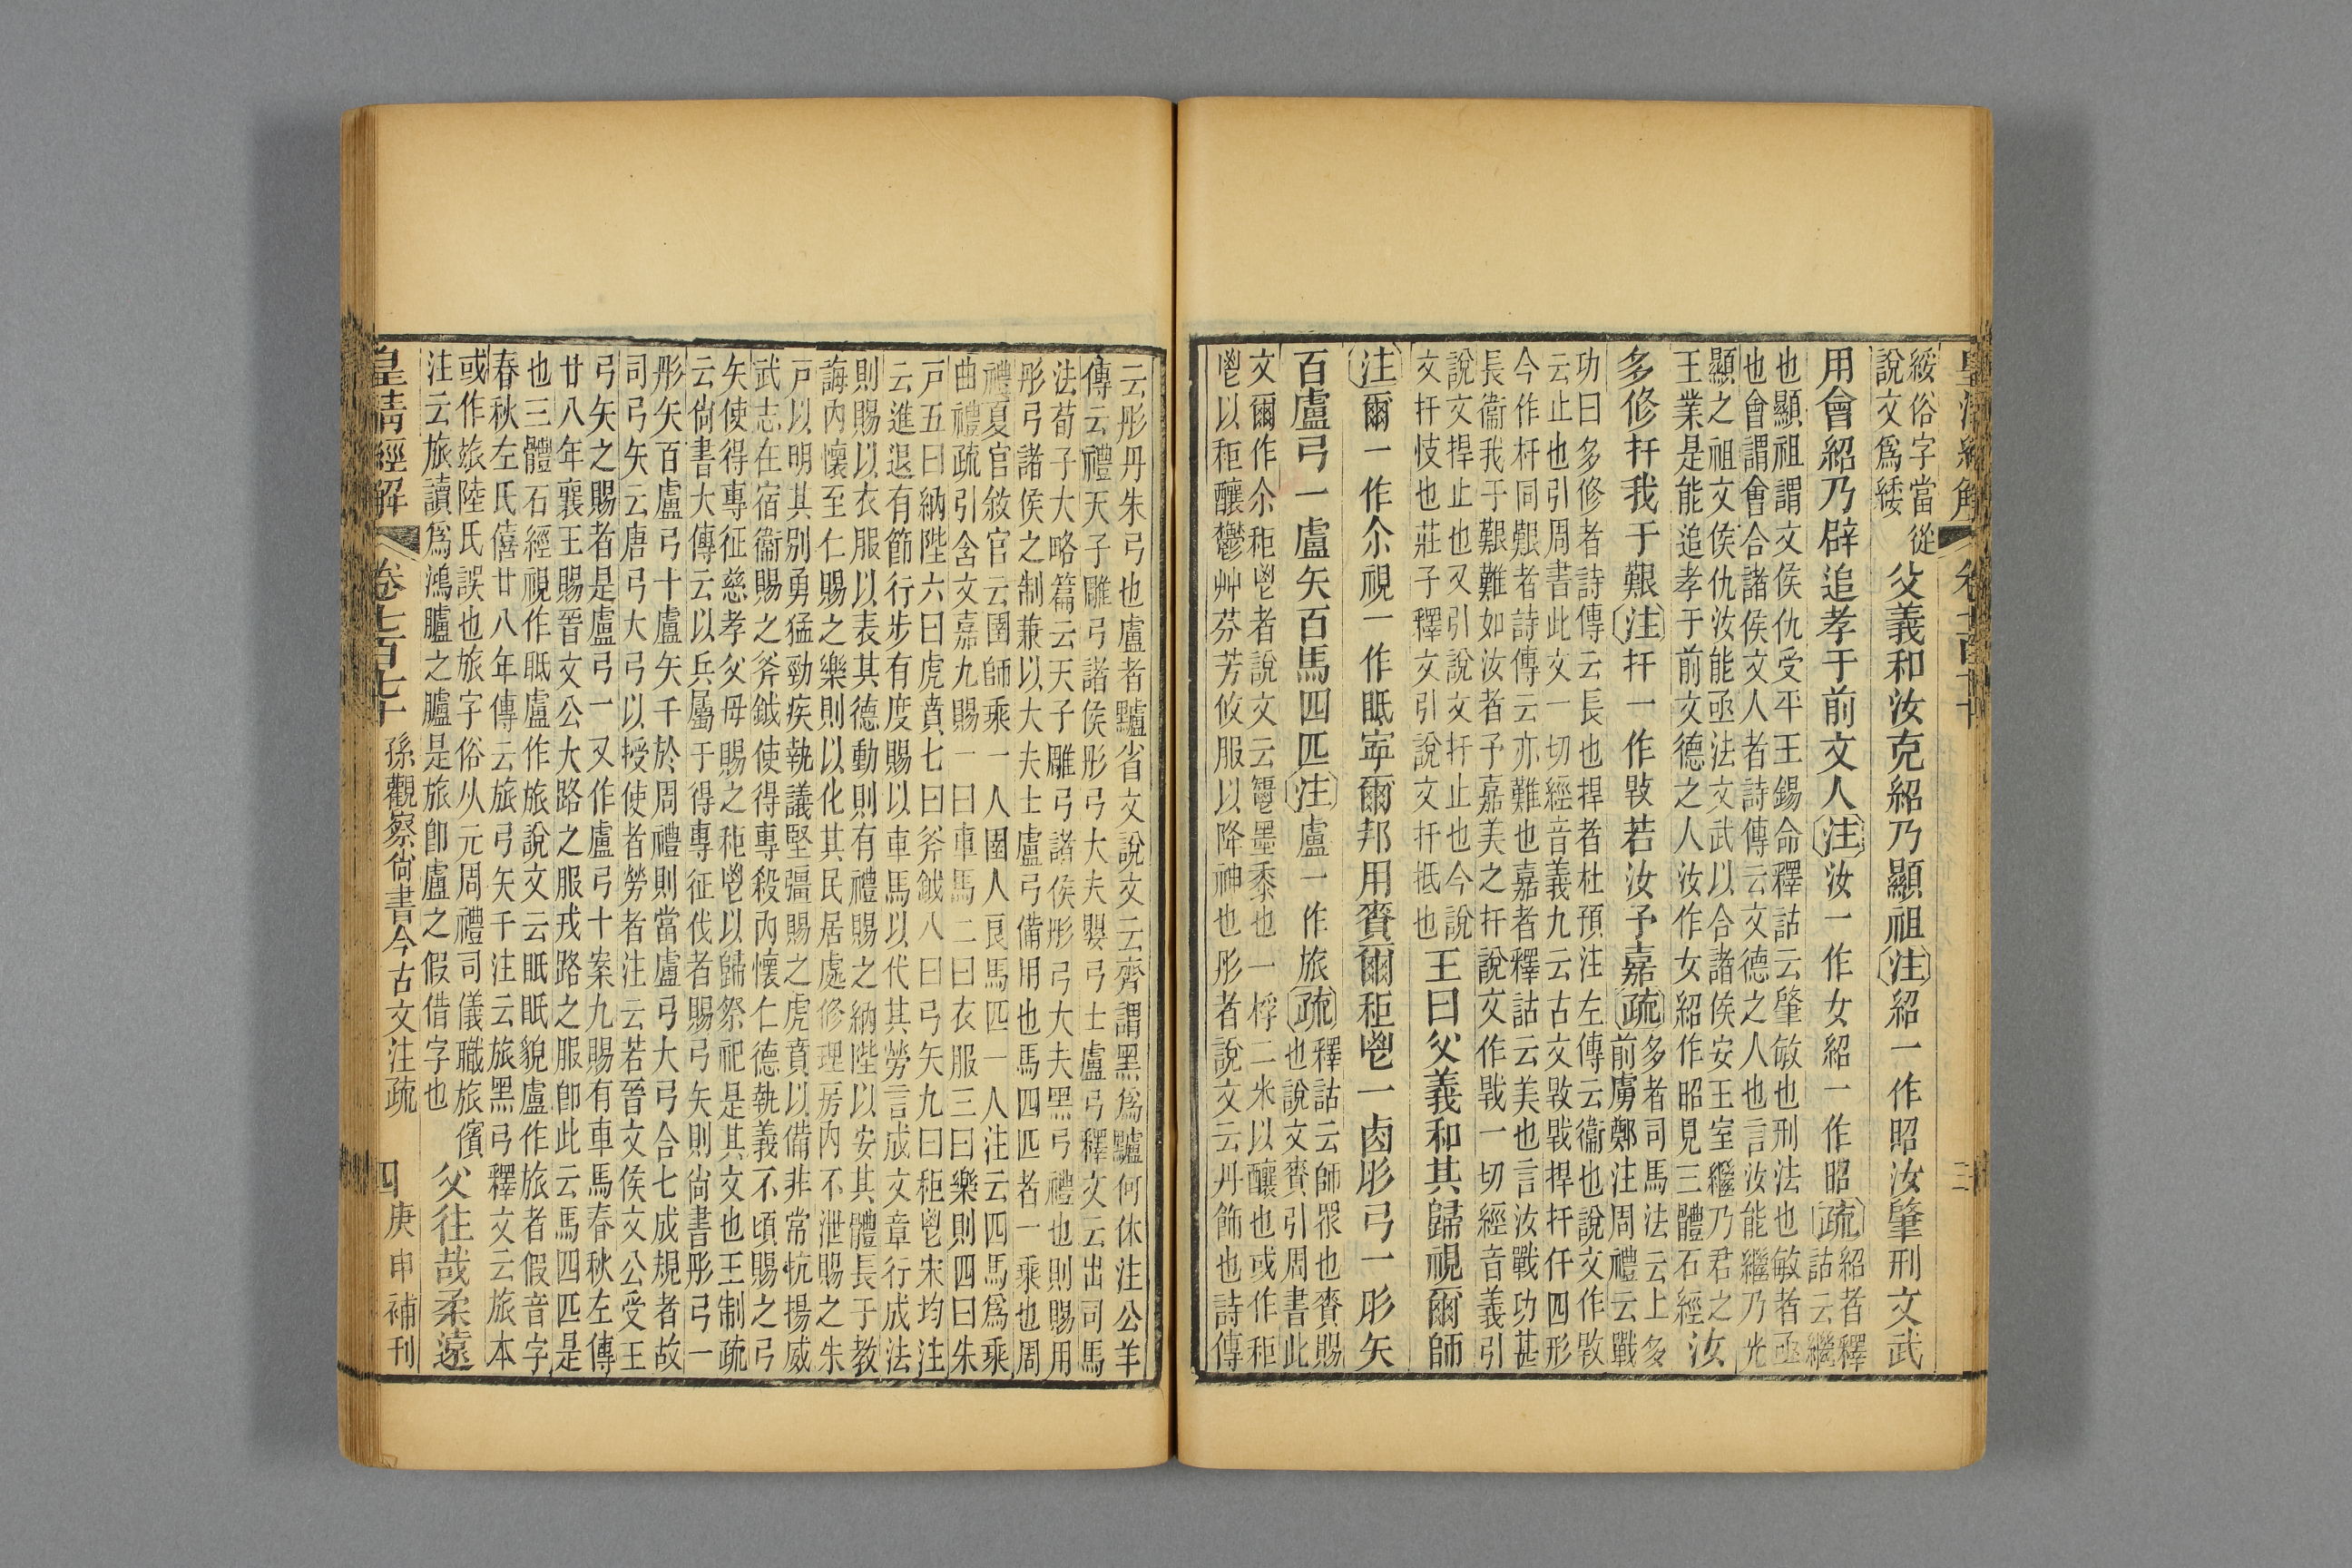 皇清經解 卷七百七十 三
綏俗字當從
說文爲緌
父義和汝克紹乃顯祖注紹一作昭汝肇刑文武
用會紹乃辟追孝于前文人注汝一作女紹一作昭疏
紹者釋
詁云繼
也顯祖謂文侯仇受平王錫命釋詁云肇敏也刑法也敏者亟
也會謂會合諸侯文人者詩傳云文德之人也言汝能繼乃光
顯之祖文侯仇汝能亟法文武以合諸侯安王室繼乃君之
王業是能追孝于前文德之人汝作女紹作昭見三體石經
汝
多修扞我于艱注扞一作㪋若汝予嘉疏
多者司馬法云上多
前虜鄭注周禮云戰
功曰多修者詩傳云長也捍者杜預注左傳云衞也說文作㪋
云止也引周書此文一切經音義九云古文㪋戰捍扞仟四形
今作杆同艱者詩傳云亦難也嘉者釋詁云美也言汝戰功甚
長衞我于艱難如汝者予嘉美之扞說文作戰一切經音義引
說文捍止也又引說文扞止也今說
文扞忮也莊子釋文引說文扞抵也
王曰父義和其歸視爾師
注爾一作尒視一作眡寕爾邦用賚爾秬鬯一卣彤弓一彤矢
百盧弓一盧矢百馬四匹注盧一作旅疏
釋詁云師眾也賚賜
也說文賚引周書此
文爾作尒秬鬯者說文云䵫黑黍也一稃二米以釀也或作秬
鬯以秬釀鬱艸芬芳攸服以降神也彤者說文云丹飾也詩傳
云彤丹朱弓也盧者黸省文說文云齊謂黑爲黸何休注公羊
傳云禮天子雕弓諸侯彤弓大夫嬰弓士盧弓釋文云出司馬
法荀子大略篇云天子雕弓諸侯彤弓大夫黑弓禮也則賜用
彤弓諸侯之制兼以大夫士盧弓備用也馬四匹者一乘也周
禮夏官敘官云圉師乘一人圉人良馬匹一人注云四馬爲乘
曲禮疏引含文嘉九賜一曰車馬二曰衣服三曰樂則四曰朱
戸五曰納陛六曰虎賁七曰斧鉞八曰弓矢九曰秬鬯宋均注
云進退有節行步有度賜以車馬以代其勞言成文章行成法
則賜以衣服以表其德動則有禮賜之納陛以安其體長于教
誨內懷至仁賜之樂則以化其民居處修理房內不泄賜之朱
戸以明其別勇猛勁疾執議堅彊賜之虎賁以備非常抗揚威
武志在宿衞賜之斧鉞使得專殺內懷仁德執義不頃賜之弓
矢使得專征慈孝父母賜之秬鬯以歸祭祀是其文也王制疏
云尙書大傳云以兵屬于得專征伐者賜弓矢則尙書彤弓一
彤矢百盧弓十盧矢千於周禮則當盧弓大弓合七成規者故
司弓矢云唐弓大弓以授使者勞者注云若晉文侯文公受王
弓矢之賜者是盧弓一又作盧弓十案九賜有車馬春秋左傳
廿八年襄王賜晉文公大路之服戎路之服卽此云馬四匹是
也三體石經視作眡盧作旅說文云眂眡貌盧作旅者假音字
春秋左氏僖廿八年傳云旅弓矢千注云旅黑弓釋文云旅本
或作旅陸氏誤也旅字俗从元周禮司儀職旅儐
注云旅讀爲鴻臚之臚是旅卽盧之假借字也
父往哉柔遠
皇清經解 卷七百七十 孫觀察尙書今古文注疏 四 庚申補刊